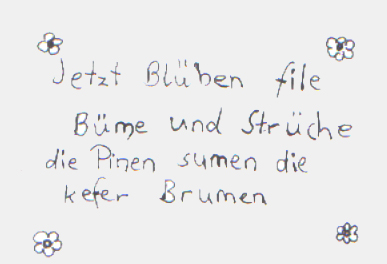 Jetzt Blühen file
Büme und Strüche
die Pinen sumen die
kefer Brumen